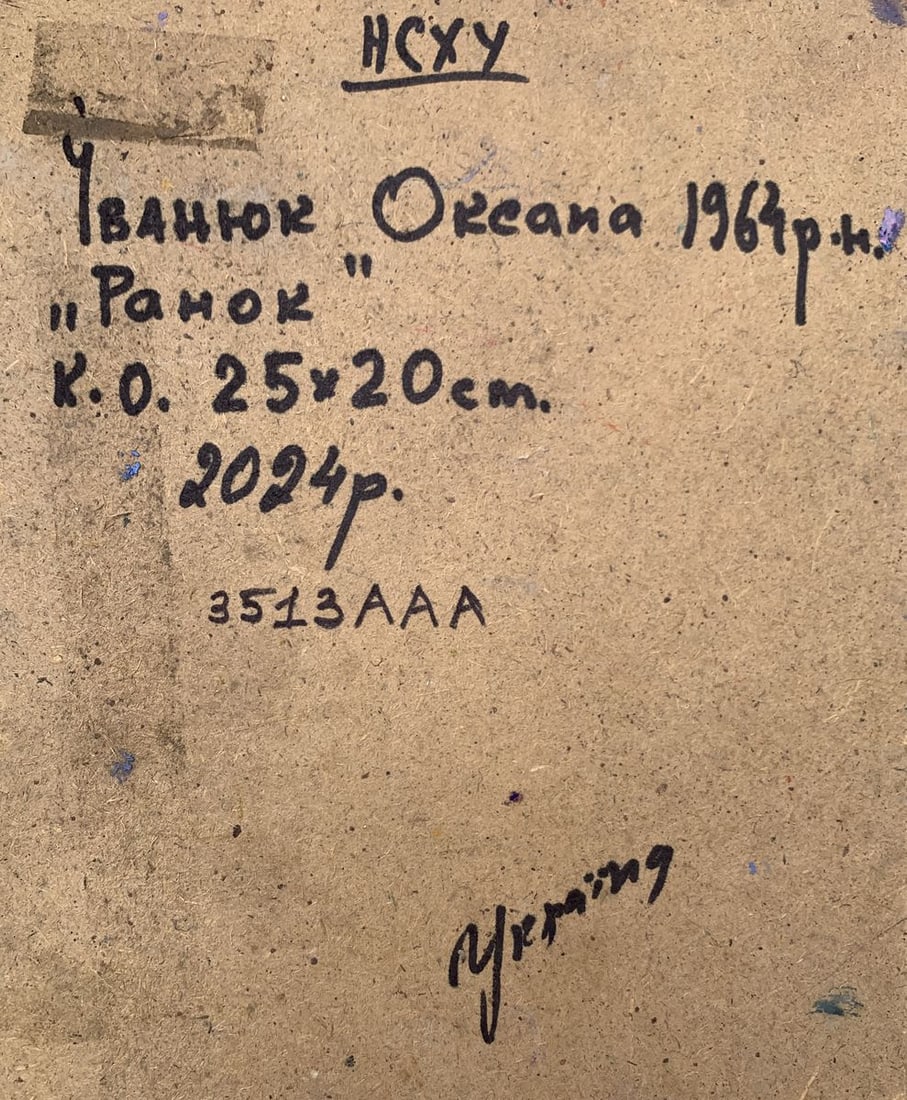 НСХУ
Іванюк Оксана 1964р.н.
„Ранок"
К.О. 25х20см.
2024р.
3513ААА
Україна